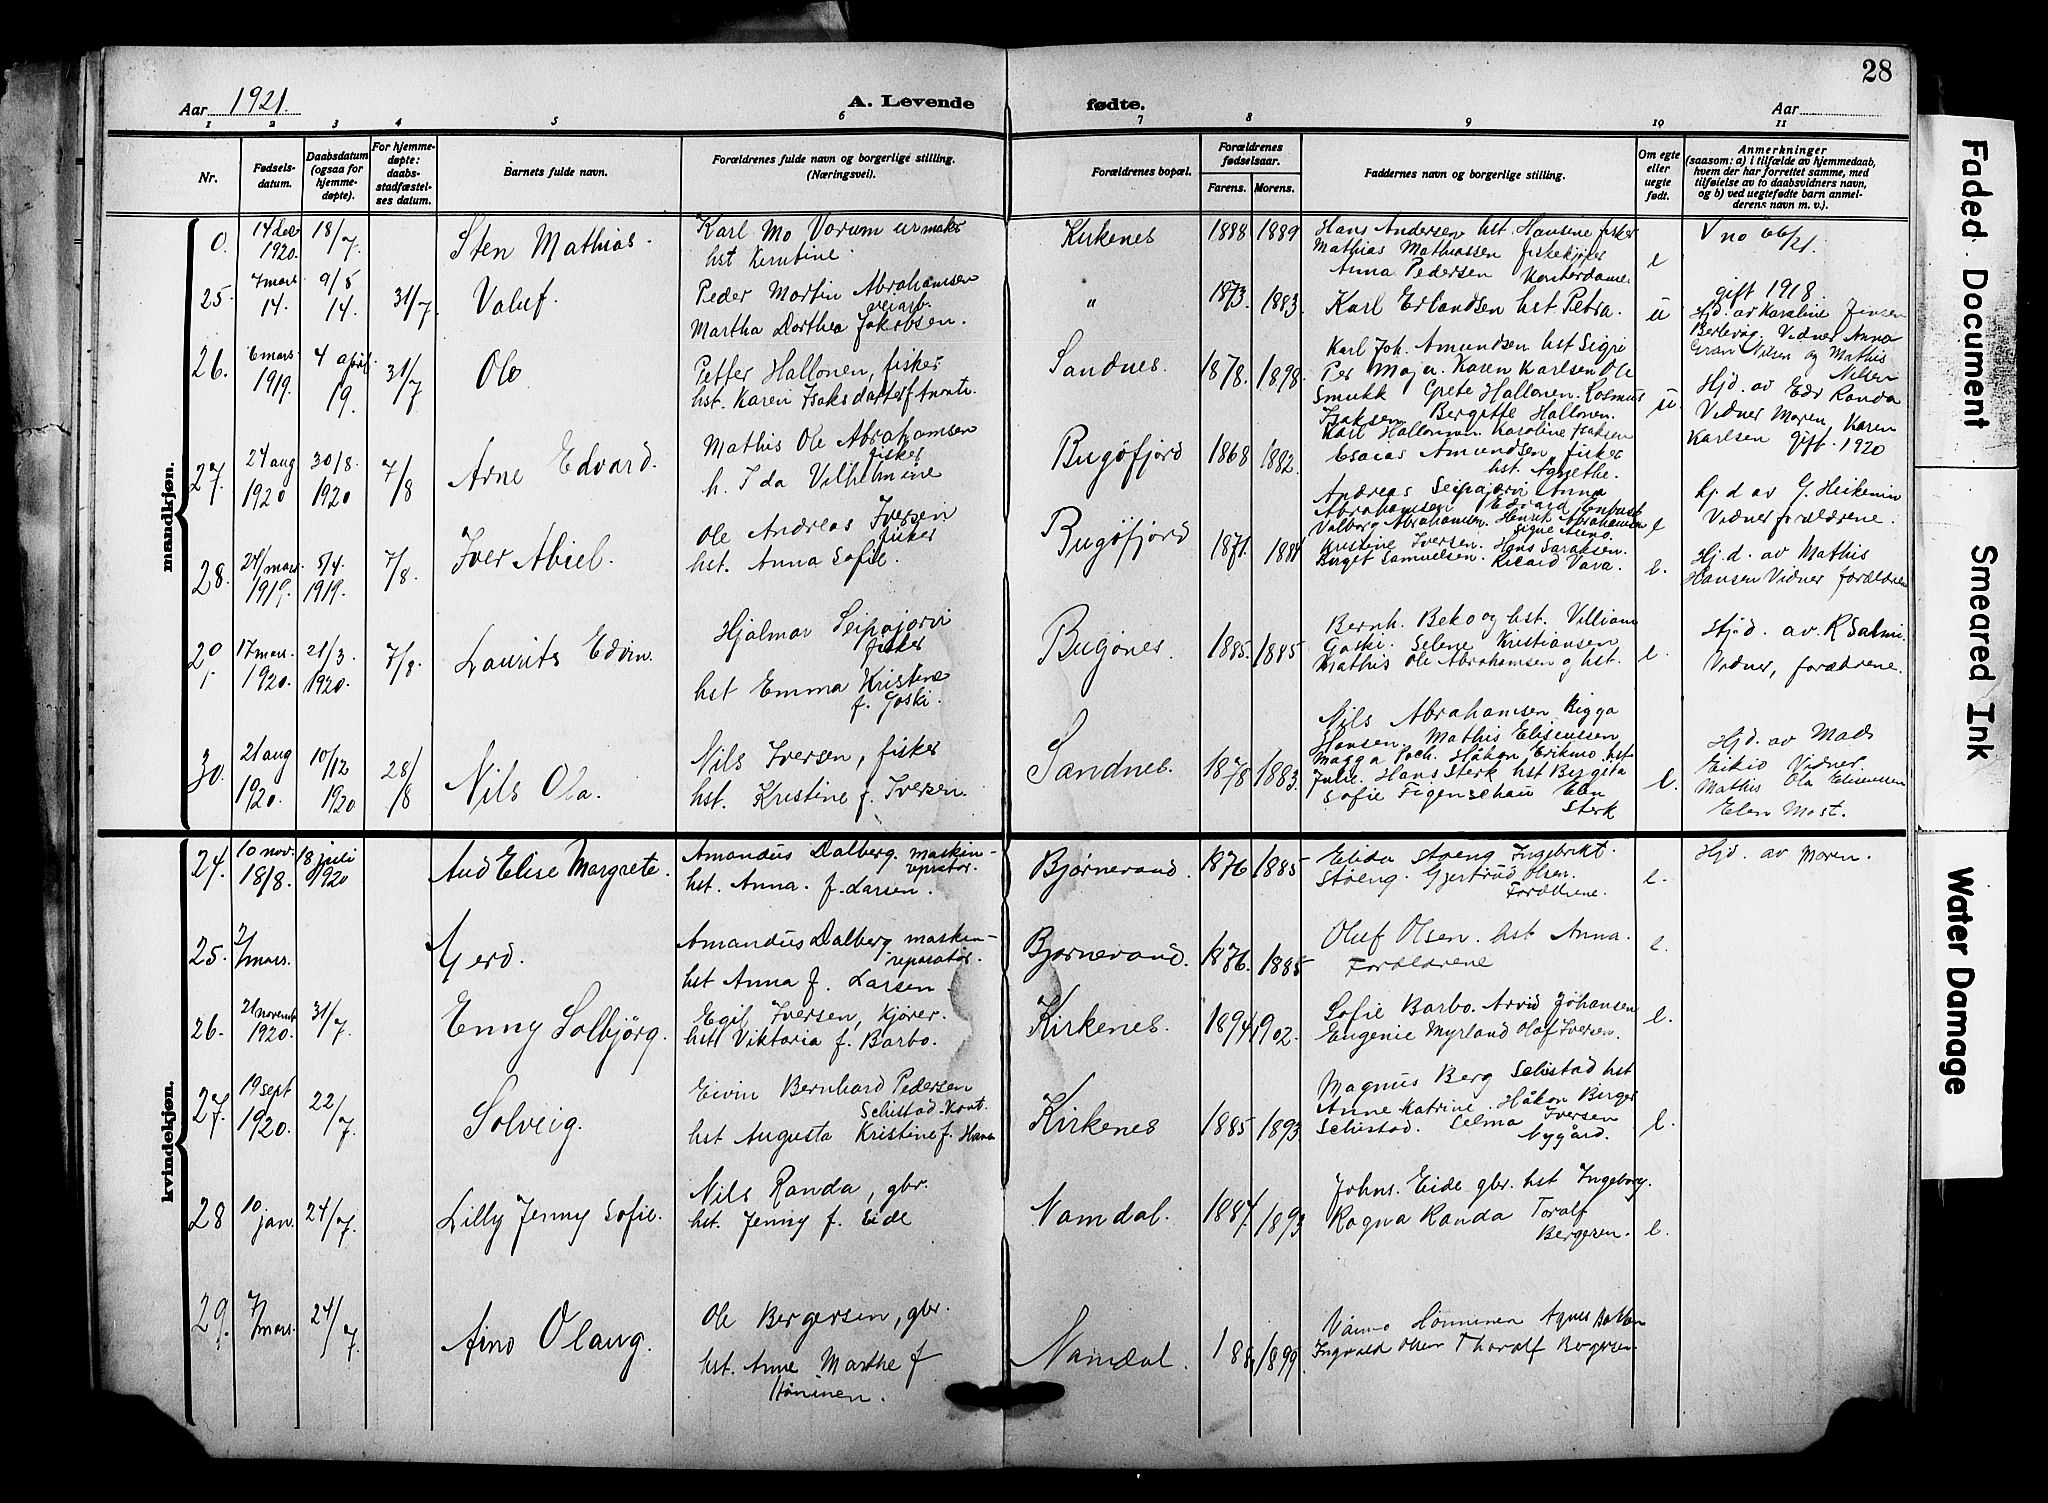 28
Aar 1921.
A. Levende fødte.
Aar
1 2 3 4 5 6 7 8 9 10 11
Nr.
Fødsels-
datum.
Daabsdatum
(ogsaa for
hjemme-
døpte).
For hjemme-
døpte:
daabs-
stadfæstel-
ses datum.
Barnets fulde navn.
Forældrenes fulde navn og borgerlige stilling.
(Næringsvei).
Forældrenes bopæl.
Forældrenes
fødselsaar.
Farens. Morens.
Faddernes navn og borgerlige stilling.
Om egte
eller
uegte
født.
Anmerkninger
(saasom: a) i tilfælde av hjemmedaab,
hvem der har forrettet samme, med
tilføielse av to daabsvidners navn,
og b) ved uegtefødte barn anmel-
derens navn m. v.).
mandkjøn.
0. 14 des 1920. 18/7.
Sten Mathias.
Karl Mo Vorum urmaker
hst
Kirkenes 1888 1889
Hans Andersen hst. Hansine fisker
Mathias Mathiassen
Anna Pedersen Kontordame
e
V no 66/21.
25. 7 mars 14. 9/5 14. 31/7.
Valuf.
Peder Martin Abrahamsen
veiarb.
Martha Dorthea Jakobsen.
" 1873. 1883.
Karl Erlandsen hst Petra.
u
gift 1918.
Hjd. av Karoline Jensen
Berlevåg. Vidner Anna
Gran Nilsen og Mathis
Nilsen
26. 6 mars 1919. 4 april 19. 31/7
Ole
Petter Hallonen, fisker
hst. Karen Isaksdatter
Sandnes. 1878. 1898.
Karl Joh. Amundsen hst Sigri
Per Maja. Karen Karlsen Ole
Smukk Grete Hallonen. Rasmus
Isaksen. Bergitte Hallonen.
u.
Hjd. av Edv Randa
Vidner Moren, Karen
Karlsen gift. 1920
27. 24 aug 1920 30/8. 1920 7/8
Arne Edvard.
Mathis Ole Abrahamsen
fisker
h. Ida Vilhelmine
Bugøfjord 1868 1882.
Karl Hallonen Karoline Isaksen
Esaias Amundsen, fisker
hst. Agnethe.
Andreas Seipajærvi Anna
Abrahamsen
e
hj. d av G. Heikenin
Vidner forældrene.
28. 24/mars 1919. 5/4. 1919. 7/8.
Iver Abiel.
Ole Andreas Iversen
fisker
hst. Anna Sofie.
Bugøfjord 1871. 1884
Valborg Abrahamsen. Henrik Abrahamsen
Kristine Iversen. Hans Saraksen.
Berget Samuelsen. Ricard Vara.
e.
Hj. d. av Mathis
Hansen Vidner forældrene
29. 17 mars. 1920. 21/3. 1920. 7/8.
Laurits Edvin.
Hjalmar Seipajærvi
fisker
hst Emma Kristine
f. Gaski.
Bugønes. 1885. 1885
Bernh. Beko og hst. Villiam
Gaski. Selene Kristiansen
Mathis Ole Abrahamsen og hst.
e.
Hjd. av. R Salmi.
Vidner, forældrene.
30. 21 aug 1920. 10/12 1920 28/8
Nils Ola.
Nils Iversen, fisker
hst. Kristine f. Iversen.
Sandnes. 1878 1883.
Nils Abrahamsen Bigga
Hansen. Mathis Eliseussen
Magga Håkon hst
Julie. Hans Sterk hst Bergeta
Sofie Figenschau Elen
Sterk
e.
Hjd. av Mads
Eikio Vidner.
Mathis Ola Eliseussen
Elen Mast.
kvindekjøn.
24. 10 nov. 1818. 18 juli 1920
Aud Elise Margrete.
Amandus Dalberg. maskin-
reprator.
hst. Anna. f. Larsen.
Bjørnevand. 1876 1885.
Elida Støeng Ingebrikt.
Støeng. Gjertrud Olsen.
Forældrene.
e.
Hjd. av Moren.
25. 2/mars.
Gerd.
Amandus Dalberg maskin-
reparatør.
hst Anna f. Larsen.
Bjørnevand. 1876. 1885
Oluf Olsen. hst Anna.
Forældrene
e.
26. 21 novemb 1920. 31/7.
Enny Solbjörg.
Egil Iversen, Kjører.
hst Viktoria f. Barbo.
Kirkenes. 1894 1902.
Sofie Barbo. Arvid Johansen
Eugenie Myrland Olaf Iversen.
e.
27. 19 sept 1920. 22/7.
Solveig.
Eivin Bernhard Pedersen
Seiestad. Kont.
hst Augusta Kristine f. Hansen
Kirkenes 1885 1893
Magnus Berg Seiestad hst
Anne Katrine. Håkon Birger
Seiestad. Selma Iversen
Nygård.
e.
28 10 jan. 24/7.
Lilly Jenny Sofie.
Nils Randa, gbr.
hst. Jenny f. Eide
Namdal. 1887. 1893
Johns. Eide gbr. hst Ingeborg.
Ragna Randa Toralf
Bergesen.
e.
29. 7/mars. 24/7.
Aino Olaug.
Ole Bergersen, gbr.
hst. Anne Marthe f
Häninen.
Namdal. 188 1899.
Väino Hänninen Agnes
Ingvald Olsen Thoralf Bergersen.
Faded Document
Smeared Ink
Water Damage